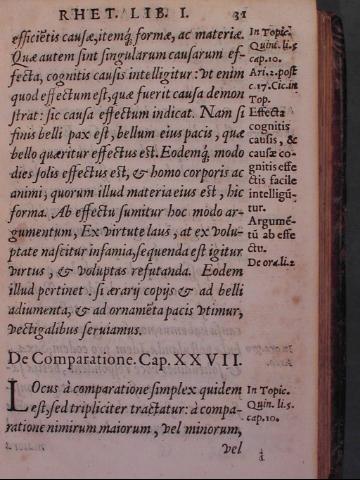 RHET. LIB. I. 31
efficiẽtis causæ, itemq́; formæ, ac materiæ.
Quæ autem sint singularum causarum ef-
fecta, cognitis causis intelligitur: vt enim
quod effectum est, quæ fuerit causa demon
strat: sic causa effectum indicat. Nam si
finis belli pax est, bellum eius pacis, quæ
bello quæritur effectus est. Eodemq́; modo
dies solis effectus est, & homo corporis ac
animi, quorum illud materia eius est, hic
forma. Ab effectu sumitur hoc modo ar-
gumentum, Ex virtute laus, at ex volu-
ptate nascitur infamia, sequenda est igitur
virtus, & voluptas refutanda. Eodem
illud pertinet: si ærarÿ copÿs & ad belli
adiumenta, & ad ornamẽta pacis vtimur,
vectigalibus seruiamus.
In Topic.
Quint. li. 5.
cap. 10.
Ari. 2. post
c. 17. Cic. in
Top.
Effecta
cognitis
causis, &
causæ co-
gnitis effe
ctis facile
intelligũ-
tur.
Argumẽ-
tũ ab effe
ctu.
De ora. li. 2
De Comparatione. Cap. XXVII.
LOcus à comparatione simplex quidem
est, sed tripliciter tractatur: à compa-
ratione nimirum maiorum, vel minorum,
vel
In Topic.
Quin. li. 5.
cap. 10.